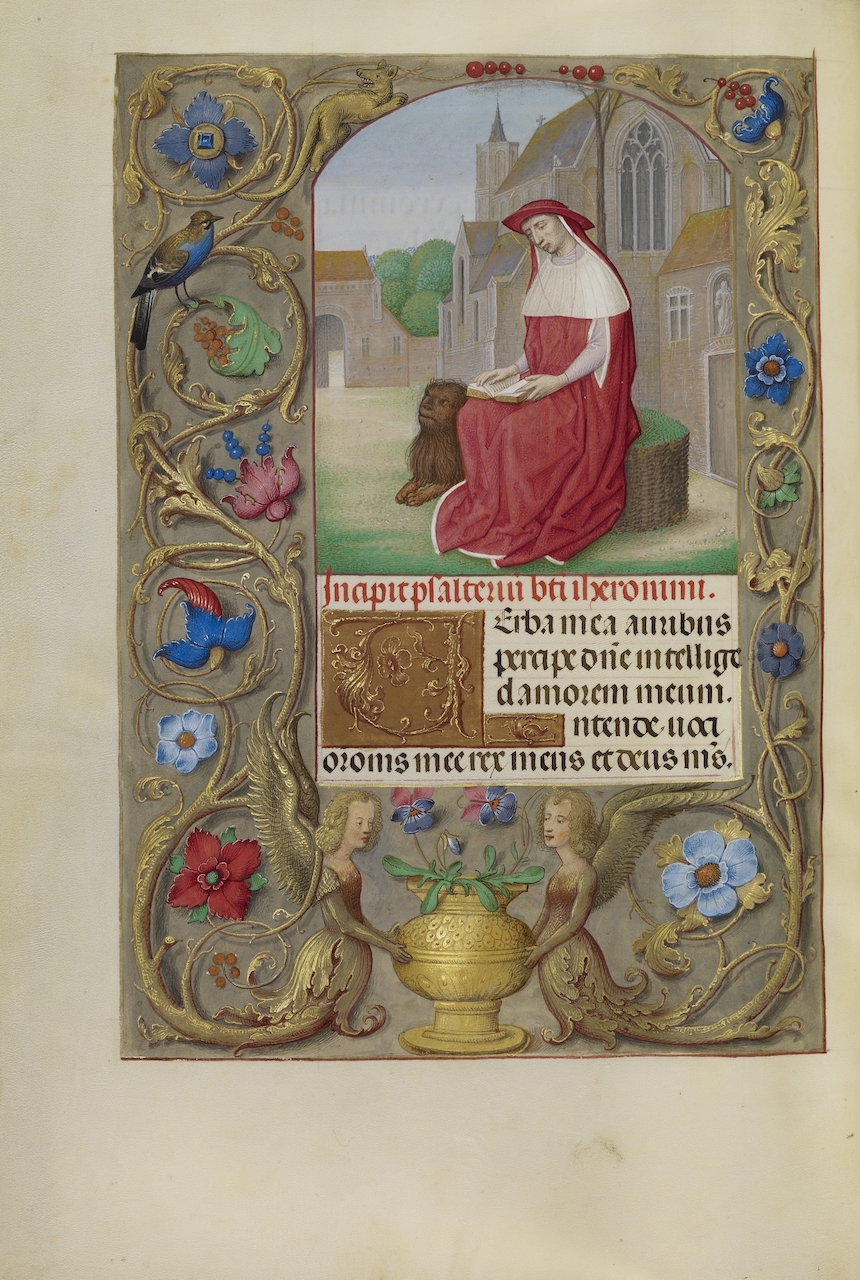 Incipit psalteriū bt̄i iheronimi.
VErba mea auribus
percipe dn̄e intellige
clamorem meum.
Intende uoci
or̄onis mee rex meus et deus m̄s.